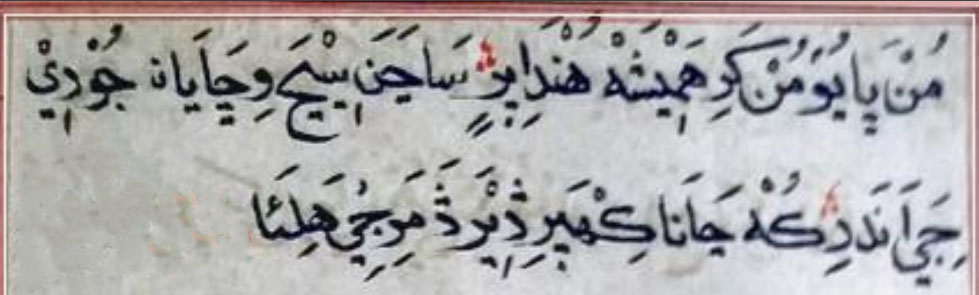 مُنْ پَايُوْ مُنْ كَرِ هَمِيْشَهْ هُنْدَا پِرٍ سَاجَنِ سِيْجَ وِچَايَان جُوْدِيْ
جِيَ اَنَدَرِ كُهْ جَانَا كِهَپَرِ ڎِيْرَ ڎَمَرِجِيْ هَلِئَا